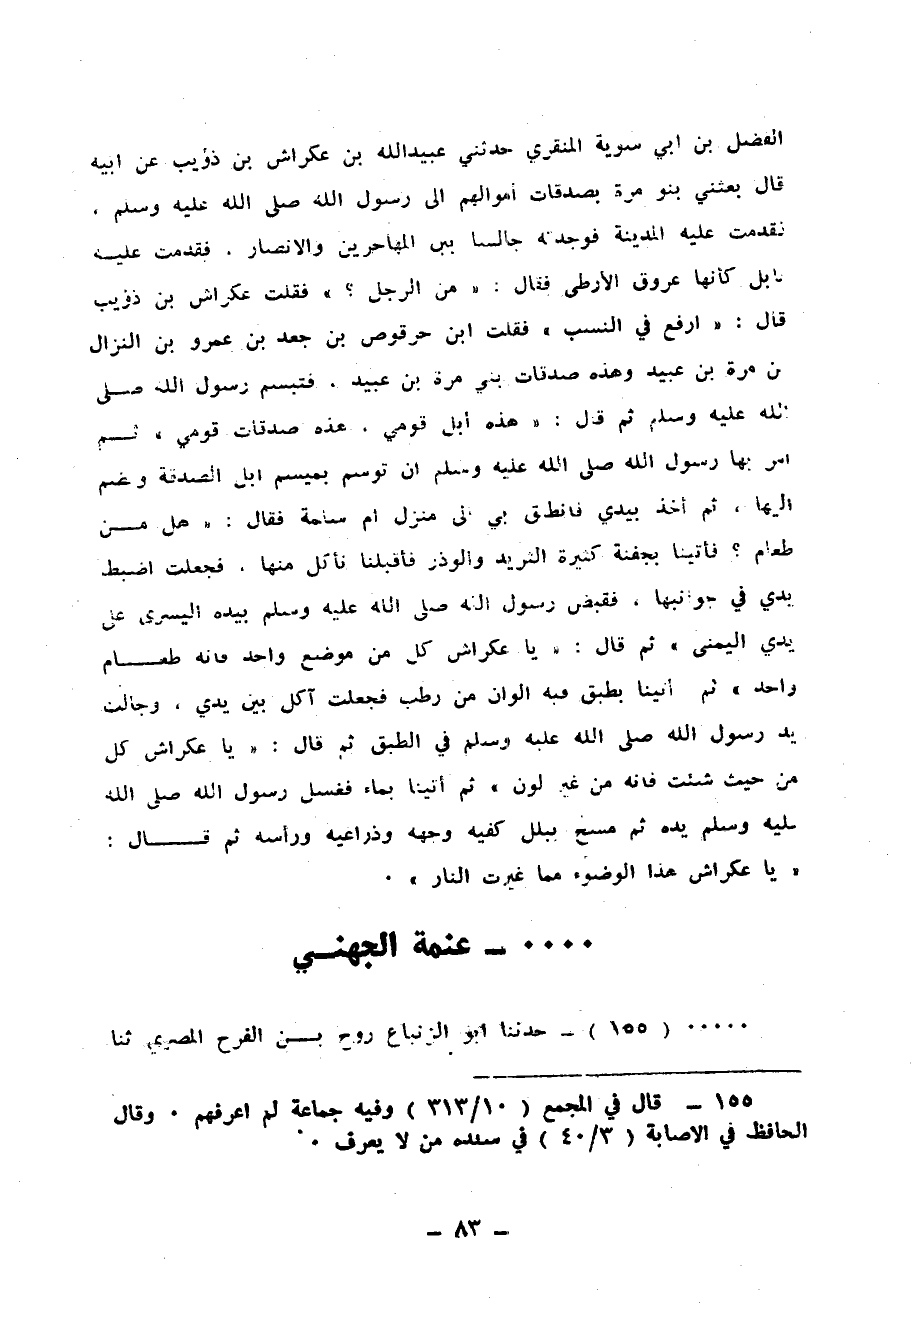 الفضل بن ابي سوية المنقري حدثني عبيدالله بن عكراش بن ذؤيب عن ابيه
قال بعثني بنو مرة بصدقات أموالهم الى رسول الله صلى الله عليه وسلم ،
فقدمت عليه المدينة فوجدته جالسا بين المهاجرين والانصار . فقدمت عليـه
بابل كأنها عروق الأرطى فقال : « من الرجل ؟ » فقلت عكراش بن ذؤيب
قال : « ارفع في النسب » فقلت ابن حرقوص بن جعد بن عمرو بن النزال
بن مرة بن عبيد وهذه صدقات بني مرة بن عبيد . فتبسم رسول الله صـلى
الله عليه وسلم ثم قال : « هذه أبل قومي . هذه صدقات قومي » ثـــم
امر بها رسول الله صلى الله عليه وسلم ان توسم بميسم ابل الصدقة وتضم
اليها ، ثم أخذ بيدي فانطلق بي الى منزل ام سلمة فقال : « هل مـــن
طعام ؟ فأتينا بجفنة كثيرة الثريد والوذر فأقبلنا نأكل منها . فجعلت اضبط
يدي في جوانبها ، فقبض رسول الله صلى الله عليه وسلم بيده اليسرى على
يدي اليمنى » ثم قال : « يا عكراش كل من موضع واحد فانه طعـــام
واحد » ثم أتينا بطبق فيه الوان من رطب فجعلت آكل بين يدي ، وجالت
يد رسول الله صلى الله عليه وسلم في الطبق ثم قال : « يا عكراش كل
من حيث شئت فانه من غير لون » ثم أتينا بماء فغسل رسول الله صلى الله
عليه وسلم يده ثم مسح ببلل كفيه وجهه وذراعيه ورأسه ثم قـــــال :
« يا عكراش هذا الوضوء مما غيرت النار » .
٠٠٠٠ ــ عنمة الجهنــي
٠٠٠٠٠ ( ١٥٥ ) ــ حدثنا ابو الزنباع روح بــن الفرج المصري ثنا
١٥٥ ــ قال في المجمع ( ٣١٣/١٠ ) وفيه جماعة لم اعرفهم ٠ وقال
الحافظ في الاصابة ( ٤٠/٣ ) في سنده من لا يعرف ٠
ــ ٨٣ ــ